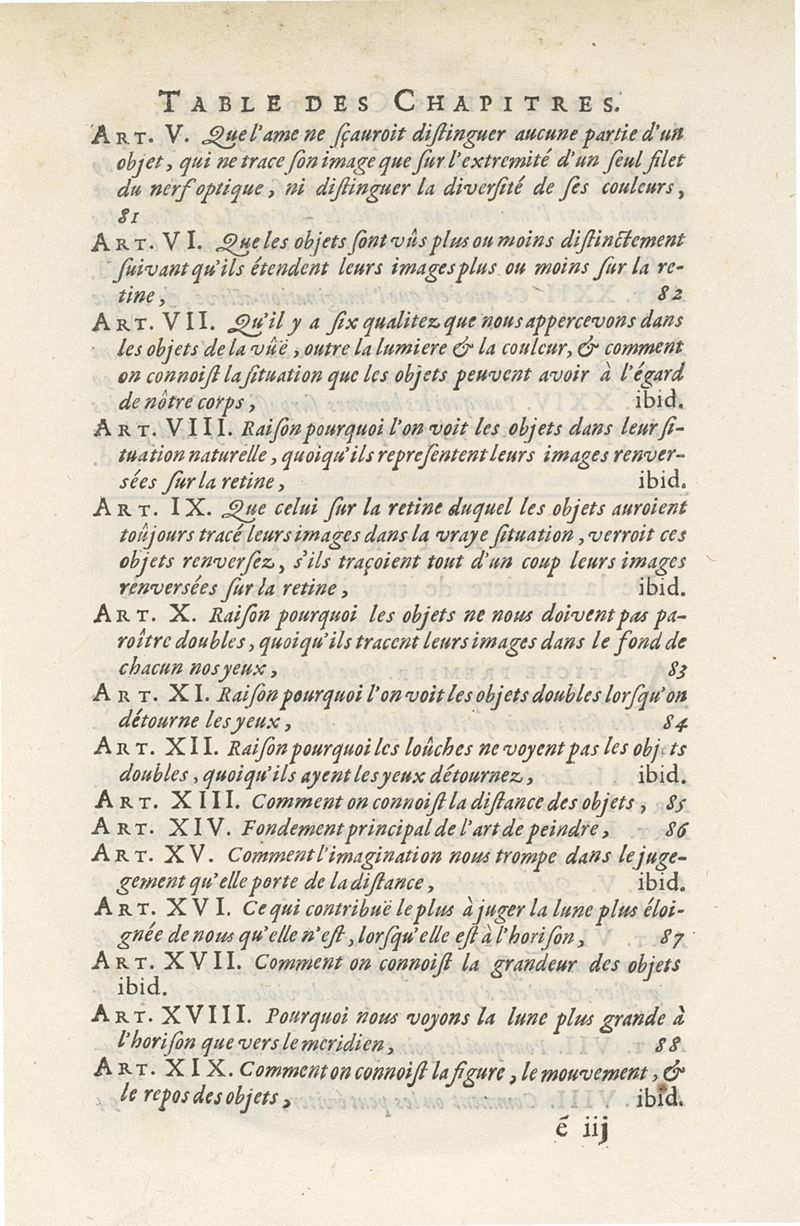 TABLE DES CHAPITRES.
ART. V. Que l'ame ne sçauroit distinguer aucune partie d'un
objet, qui ne trace son image que sur l'extremité d'un seul filet
du nerf optique, ni distinguer la diversité de ses couleurs,
81
ART. VI. Que les objets sont vûs plus ou moins distinctement
suivant qu'ils étendent leurs images plus ou moins sur la re-
tine, 82
ART. VII. Qu'il y a six qualitez que nous appercevons dans
les objets de la vûë, outre la lumiere & la couleur, & comment
on connoist la situation que les objets peuvent avoir à l'égard
de nôtre corps, ibid.
ART. VIII. Raison pourquoi l'on voit les objets dans leur si-
tuation naturelle, quoiqu'ils representent leurs images renver-
sées sur la retine, ibid.
ART. IX. Que celui sur la retine duquel les objets auroient
toûjours tracé leurs images dans la vraye situation, verroit ces
objets renversez, s'ils traçoient tout d'un coup leurs images
renversées sur la retine, ibid.
ART. X. Raison pourquoi les objets ne nous doivent pas pa-
roître doubles, quoiqu'ils tracent leurs images dans le fond de
chacun nos yeux, 83
ART. XI. Raison pourquoi l'on voit les objets doubles lorsqu'on
détourne les yeux, 84
ART. XII. Raison pourquoi les loûches ne voyent pas les objets
doubles, quoiqu'ils ayent les yeux détournez, ibid.
ART. XIII. Comment on connoist la distance des objets, 85
ART. XIV. Fondement principal de l'art de peindre, 86
ART. XV. Comment l'imagination nous trompe dans le juge-
gement qu'elle porte de la distance, ibid.
ART. XVI. Ce qui contribuë le plus à juger la lune plus éloi-
gnée de nous qu'elle n'est, lorsqu'elle est à l'horison, 87
ART. XVII. Comment on connoist la grandeur des objets
ibid.
ART. XVIII. Pourquoi nous voyons la lune plus grande à
l'horison que vers le meridien, 88
ART. XIX. Comment on connoist la figure, le mouvement, &
le repos des objets, ibid.
é iij